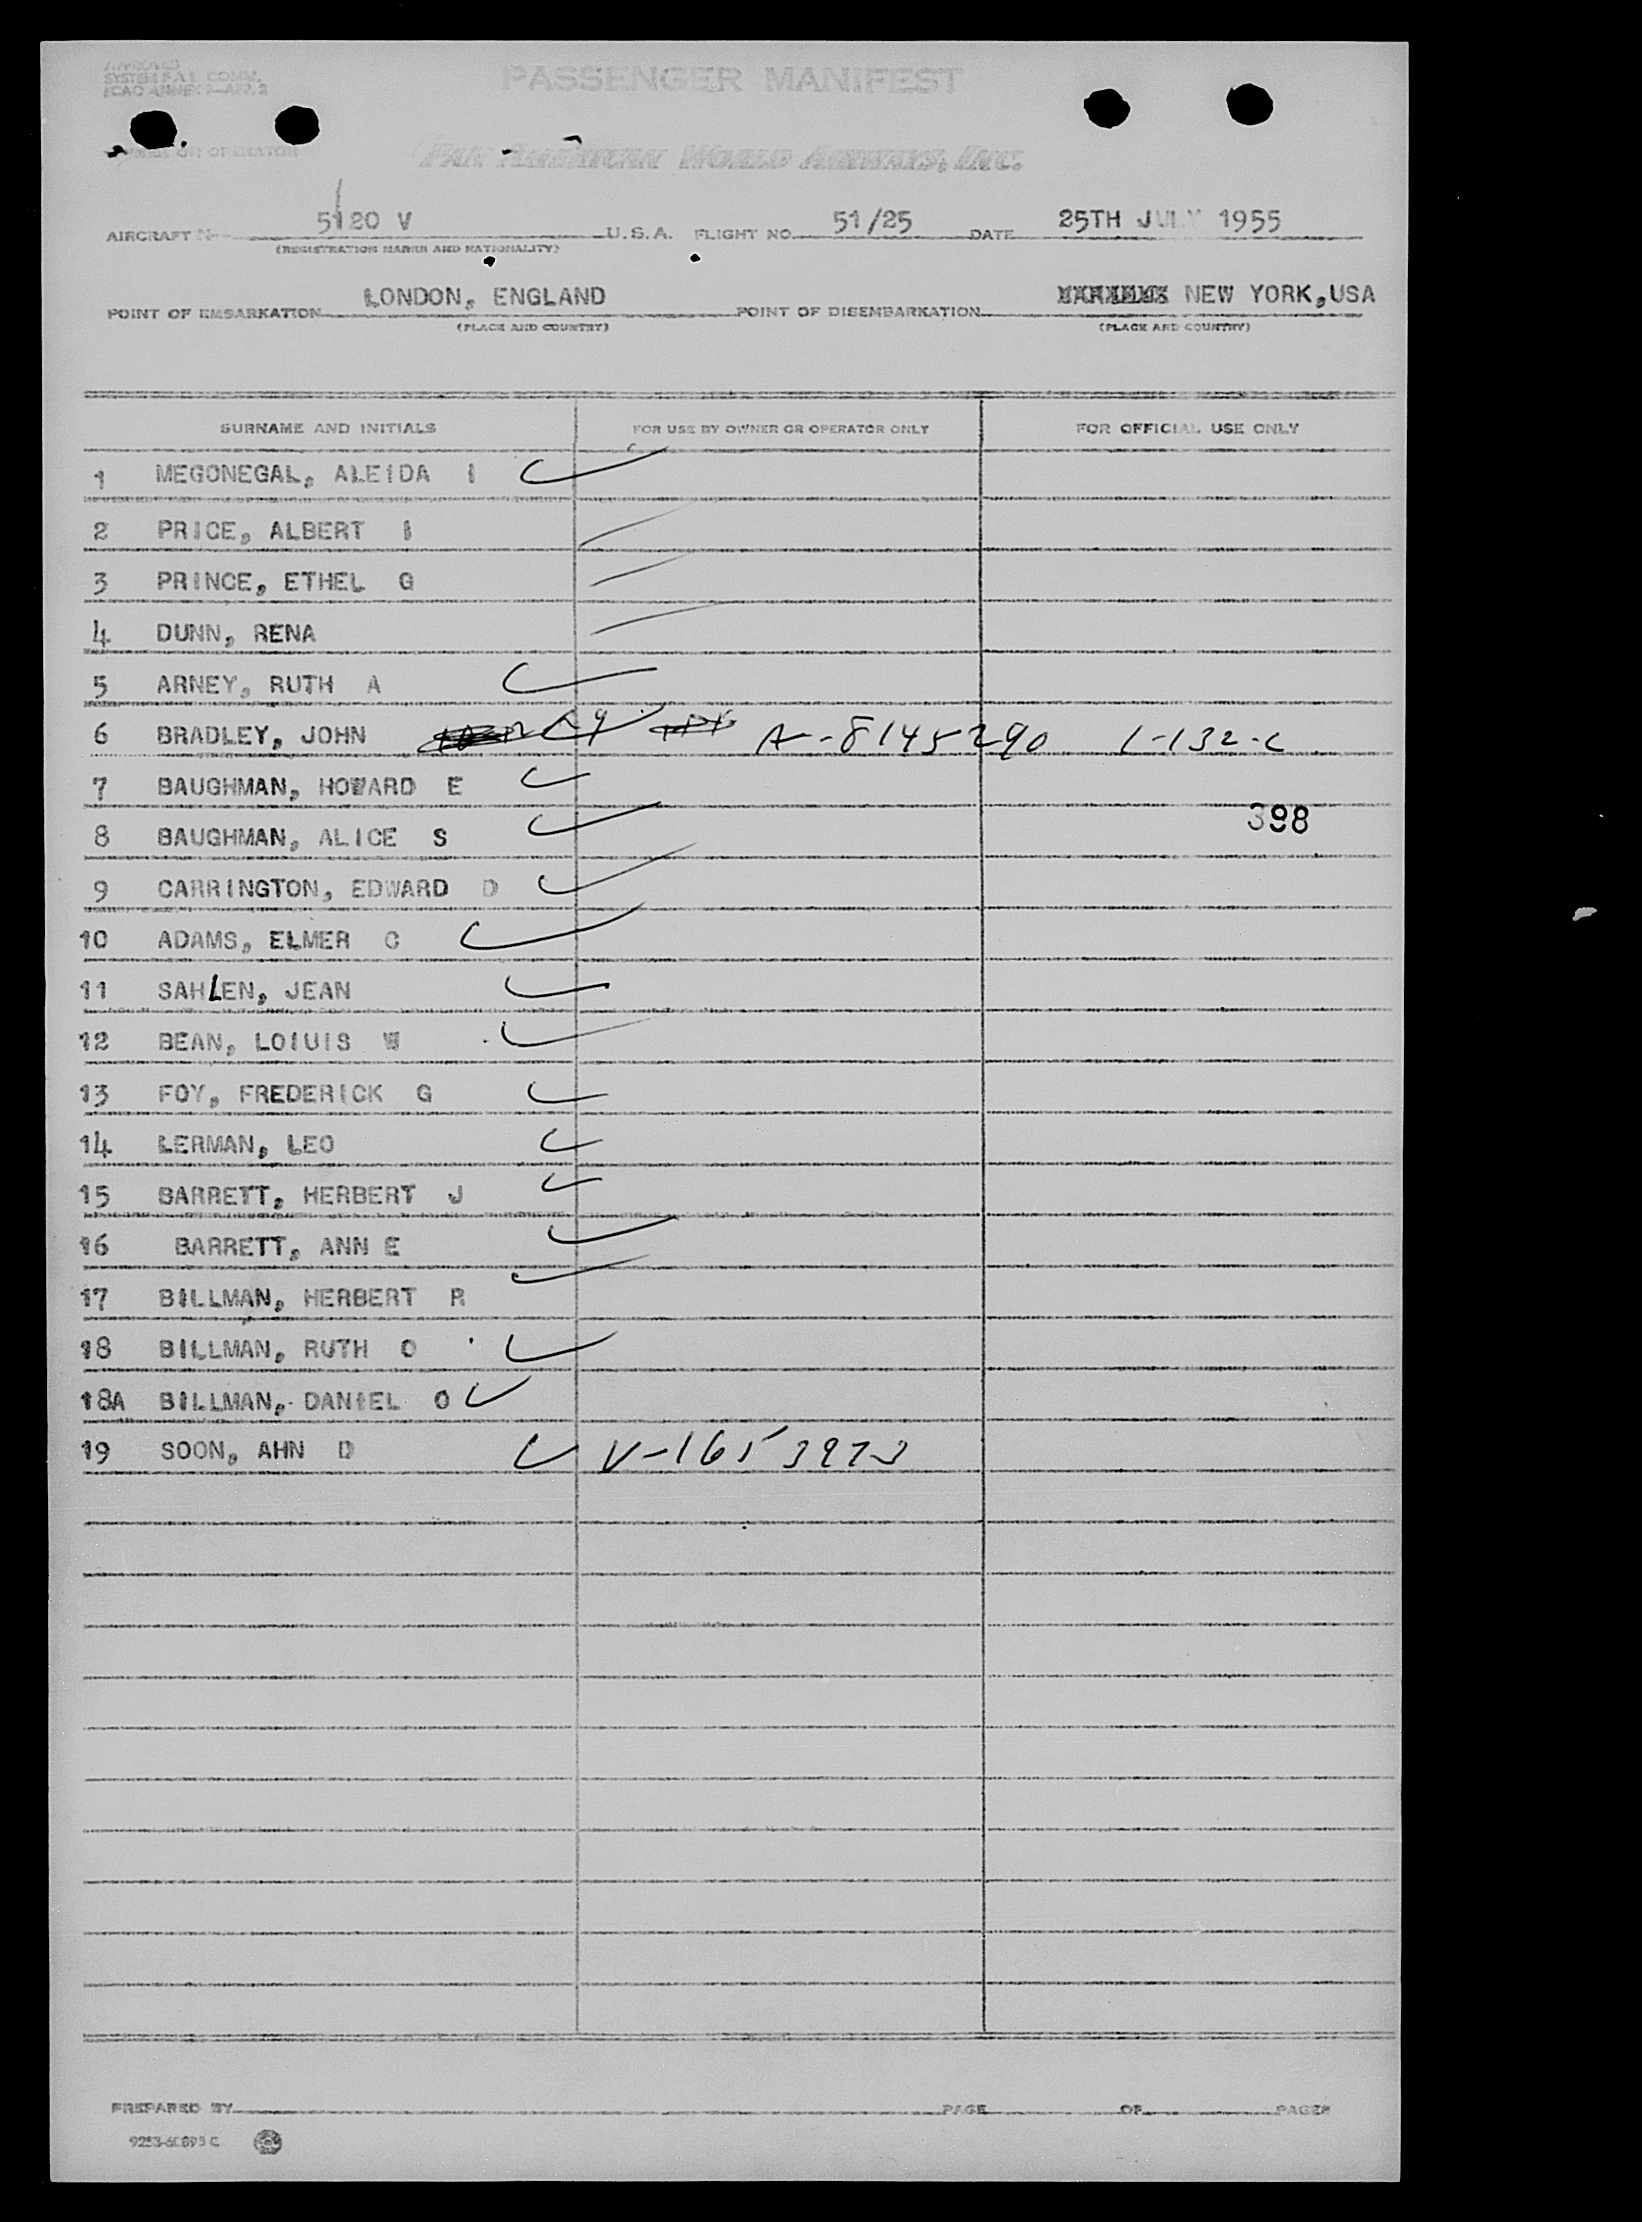 APPROVED
SYSTEM F.A.L. COMM.
ICAO ANNEX 9-APP. 2
PASSENGER MANIFEST
OWNER OR OPERATOR PAN AMERICAN WORLD AIRWAYS, INC.
AIRCRAFT N 5120 V U.S.A. FLIGHT NO. 51/25 DATE 25TH JULY 1955
(REGISTRATION MARKS AND NATIONALITY)
POINT OF EMBARKATION LONDON, ENGLAND POINT OF DISEMBARKATION NEW YORK,USA
(PLACE AND COUNTRY) (PLACE AND COUNTRY)
SURNAME AND INITIALS FOR USE BY OWNER OR OPERATOR ONLY FOR OFFICIAL USE ONLY
1 MEGONEGAL, ALEIDA I
2 PRICE, ALBERT I
3 PRINCE, ETHEL G
4 DUNN, RENA
5 ARNEY, RUTH A
6 BRADLEY, JOHN A-8145290 1-132-C
7 BAUGHMAN, HOWARD E
398
8 BAUGHMAN, ALICE S
9 CARRINGTON, EDWARD D
10 ADAMS, ELMER C
11 SAHLEN, JEAN
12 BEAN, LOIUIS W
13 FOY, FREDERICK G
14 LERMAN, LEO
15 BARRETT, HERBERT J
16 BARRETT, ANN E
17 BILLMAN, HERBERT R
18 BILLMAN, RUTH O
18A BILLMAN, DANIEL O
19 SOON, AHN D V-1653973
PREPARED BY PAGE OF PAGES